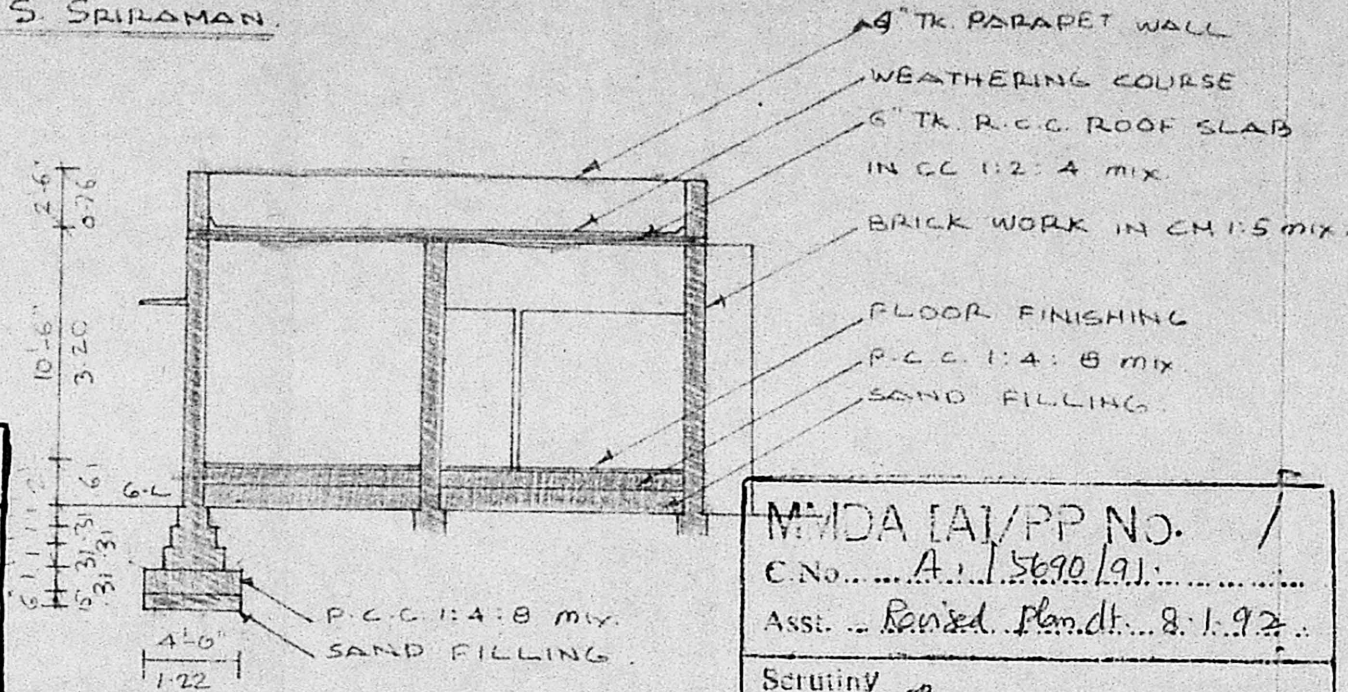 S. SRIRAMAN.
9" TK. PARAPET WALL
WEATHERING COURSE
6" TK. R.C.C. ROOF SLAB
IN CC 1:2:4 MIX.
BRICK WORK IN CM 1:5 MIX.
FLOOR FINISHING
P.C.C. 1:4:8 MIX.
SAND FILLING.
2'-6"
0.76
10'-6"
3.20
.61
G.L
.31
.31
.31
6"
.15
P.C.C. 1:4:8 MIX.
SAND FILLING.
4'-0"
1.22
MMDA [A]/PP No.
C.No. A. / 5690/91.
Asst. Revised plan dt. 8.1.92
Scrutiny